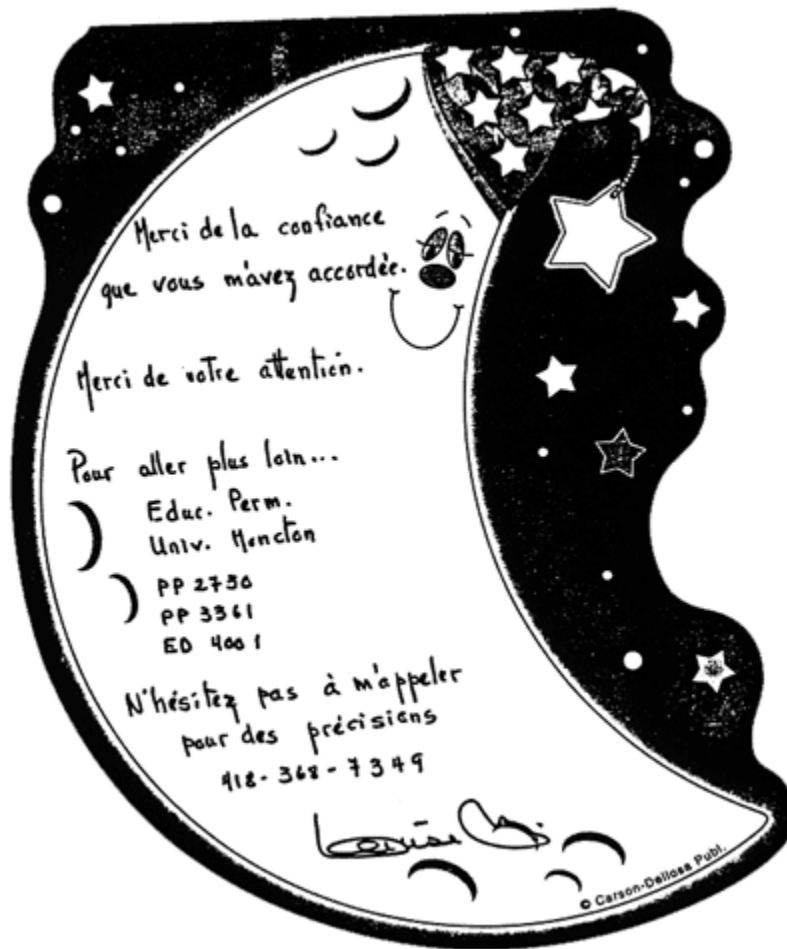 Merci de la confiance
que vous m'avez accordée.
Merci de votre attention.
Pour aller plus loin...
Educ. Perm.
Univ. Moncton
PP 2730
PP 3361
ED 4001
N'hésitez pas à m'appeler
pour des précisions
418-368-7349
Louise
© Carson-Dellosa Publ.